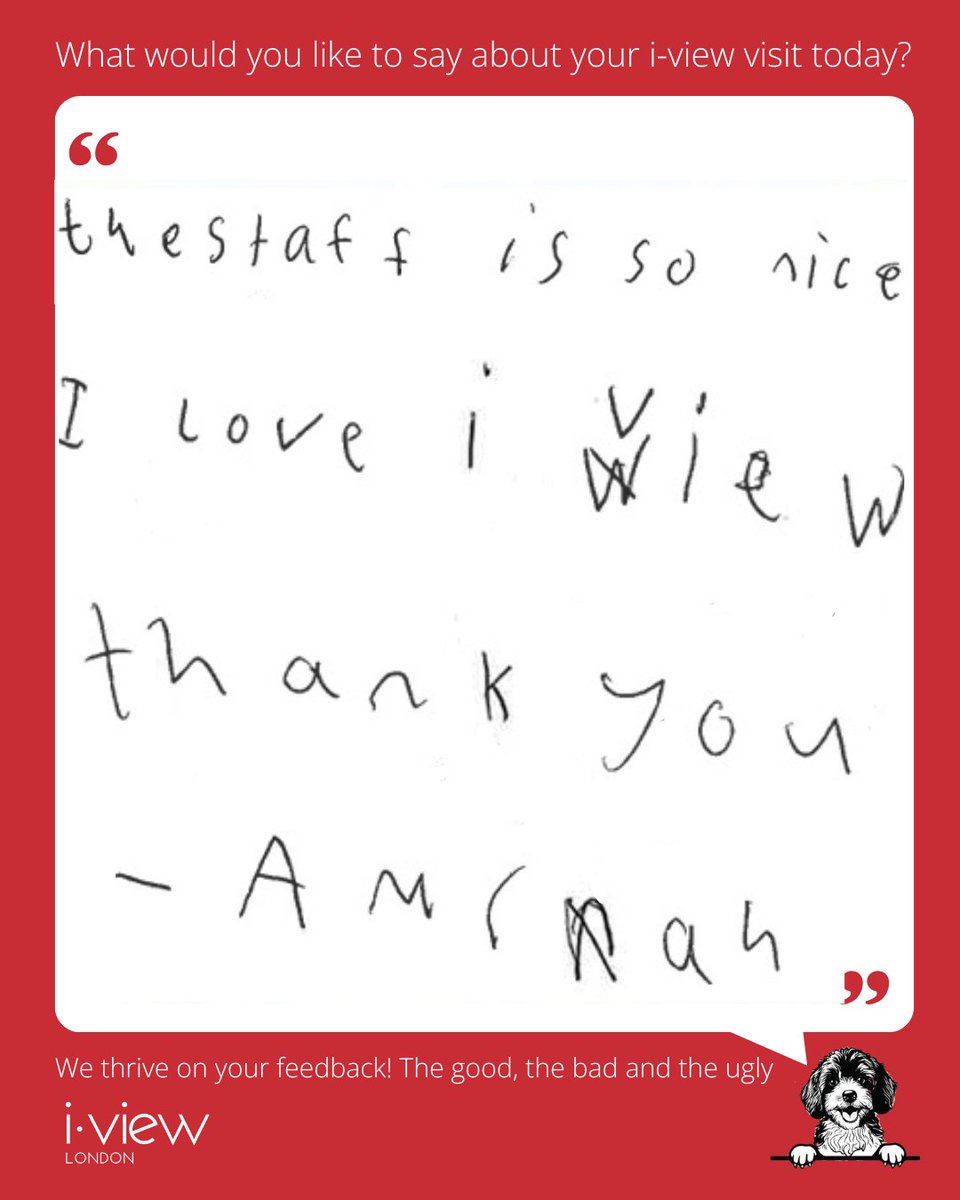 What would you like to say about your i-view visit today?
“
thestaff is so nice
I love i view
thank you
- Amrah
”
We thrive on your feedback! The good, the bad and the ugly
i·view
LONDON